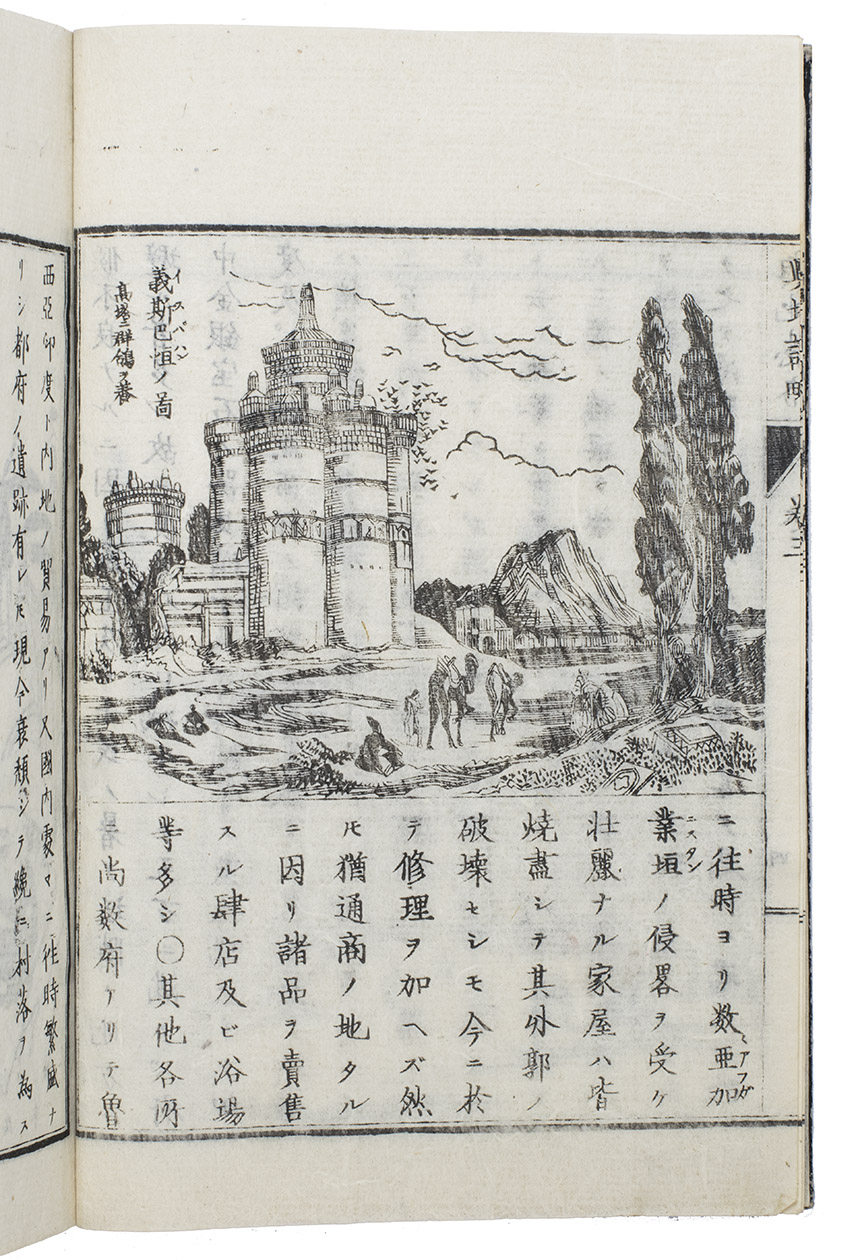 卷三
イスパハン
義斯巴恒ノ啚
高塔ニ群鴿ヲ養
ニ往時ヨリ数ミ亜加
アフガ
業垣ノ侵畧ヲ受ケ
ニスタン
壮麗ナル家屋ハ皆
焼盡シテ其外郭ノ
破壊セシモ今ニ於
テ修理ヲ加ヘズ然
𪜈猶通商ノ地タル
ニ因リ諸品ヲ賣售
スル肆店及ビ浴場
等多シ〇其他各所
ニ尚数府アリテ魯
西亞印度ト内地ノ貿易アリ又國内處々ニ往時繁盛ナ
リシ都府ノ遺跡有レ𪜈現今衰頽シテ纔ニ村落ヲ為ス